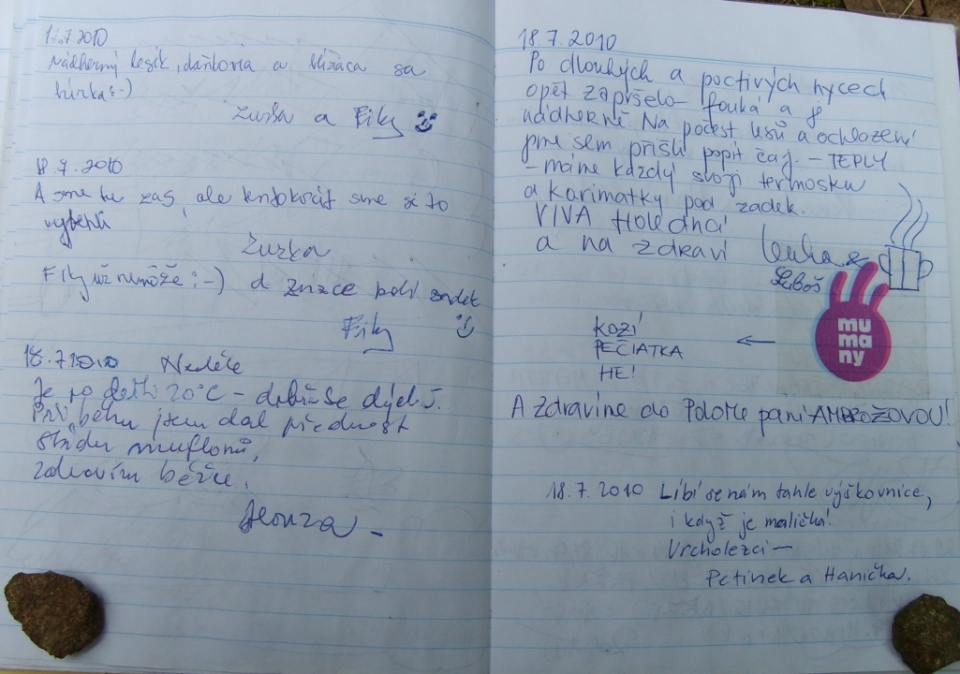 17.7.2010
Nádherný lesík, daňkovia a blížiaca sa
búrka :-)
Zuzka a Fily
18.7.2010
A sme tu zas, ale tentokrát sme si to
Zuzka
Fily už nemôže :-)
Fily
18.7.2010 Neděle
Je po dešti 20°C – dobře se dýchá.
Při běhu jsem dal přednost
stádu muflonů,
zdravím běžce.
Honza –
18.7.2010
Po dlouhých a poctivých hycech
opět zapršelo – fouká a je
nádherně Na počest lesů a ochlazení
jsme sem přišli popít čaj. – TEPLÝ
– máme každý svoji termosku
a karimatky pod zadek.
VIVA Holednci
a na zdraví Lenka &
Luboš
mu
ma
ny
KOZÍ
PEČIATKA
HE!
A zdravíme do Polomu paní AMBROŽOVOU!
18.7.2010 Líbí se nám tahle výškovnice,
i když je maličká!
Vrcholezci –
Petinek a Hanička.